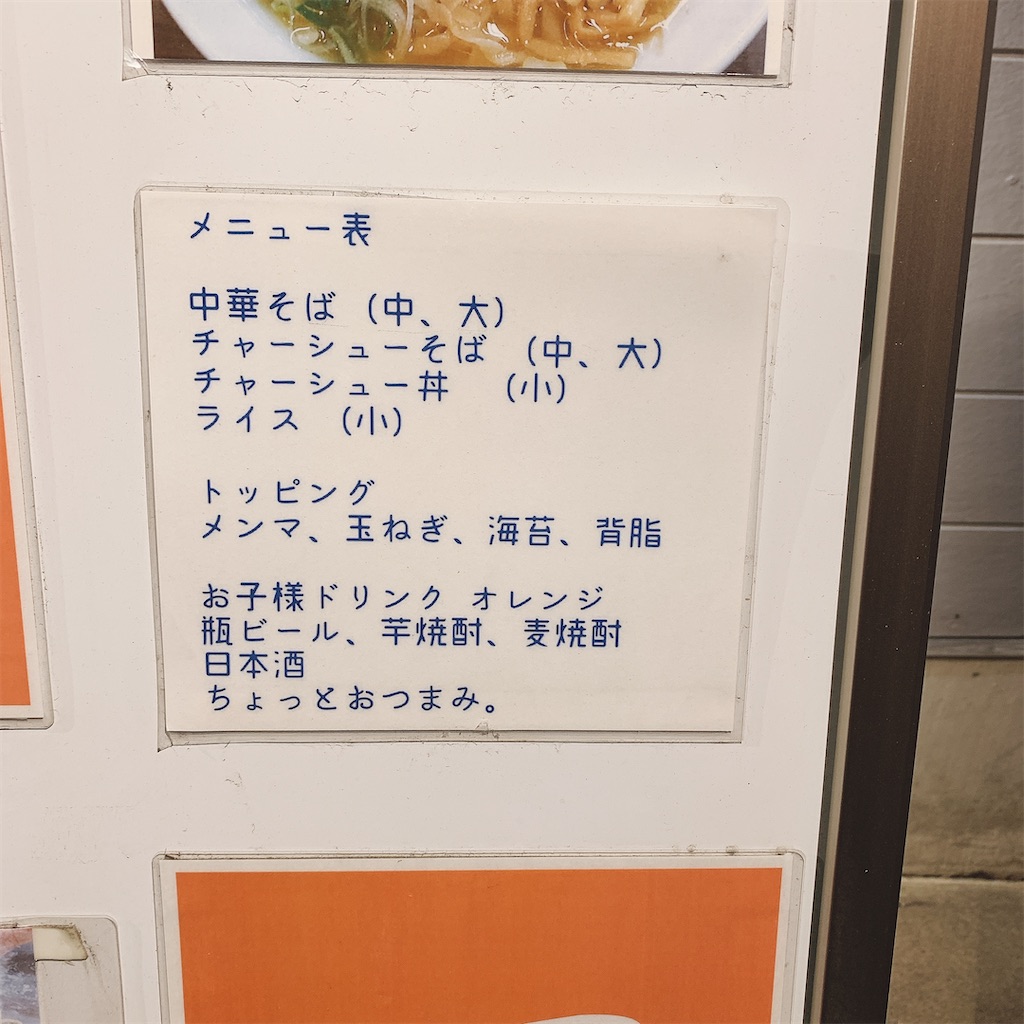 メニュー表
中華そば (中、大)
チャーシューそば (中、大)
チャーシュー丼 (小)
ライス (小)
トッピング
メンマ、玉ねぎ、海苔、背脂
お子様ドリンク オレンジ
瓶ビール、芋焼酎、麦焼酎
日本酒
ちょっとおつまみ。